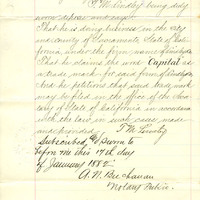 T. M. Lindley being duly
sworn deposes and says:
That he is doing business in the city
and county of Sacramento, State of Cal-
ifornia, under the firm name of Lindley & Co.
That he claims the word Capital as
a trade mark for said firm of Lindley & Co.
And he petitions that said trade mark
may be filed in the office of the Secre-
tary of State of California in accordance
with the law, in such cases made
and provided.
T. M. Lindley
Subscribed & Sworn to
before me this 17th day
of January 1882.
Notary Public.